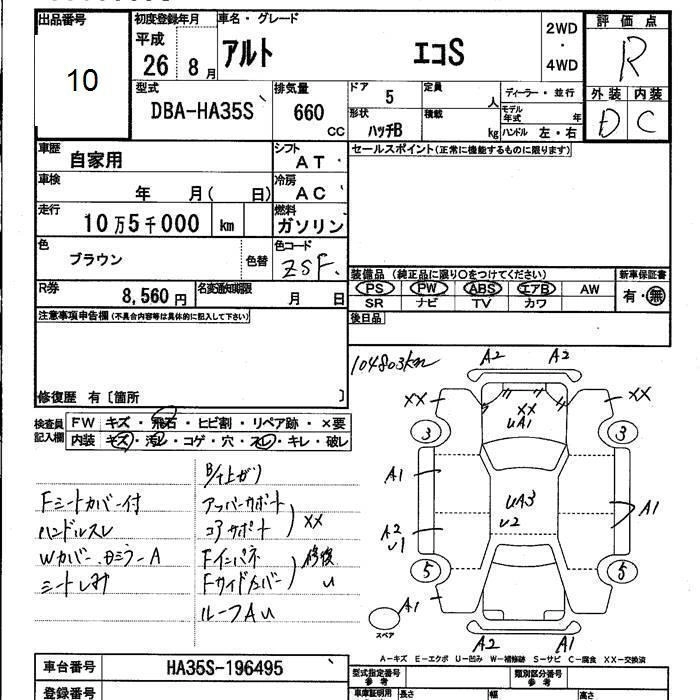 出品番号
10
初度登録年月
平成
26 8 月
車名・グレード
アルト エコS
2WD
・
4WD
評価点
R
外装 内装
D C
型式
DBA-HA35S
排気量
660
CC
ドア 5
形状
ハッチB
定員
人
積載
kg
ディーラー・並行
モデル年式 年
ハンドル 左・右
車歴 自家用
シフト AT
セールスポイント(正常に機能するものに限ります)
車検 年 月( 日)
冷房 AC
走行 10万5千000 km
燃料 ガソリン
色 ブラウン 色替
色コード ZSF.
装備品 (純正品に限り○をつけてください)
新車保証書
PS PW ABS エアB AW
有・無
SR ナビ TV カワ
R券 8,560円
名変通知期限 月 日
後日品
注意事項申告欄(不具合内容等は具体的に記入して下さい)
修復歴 有〔箇所 〕
検査員記入欄
FW キズ・飛石・ヒビ割・リペア跡・×要
内装 キズ・汚レ・コゲ・穴・スレ・キレ・破レ
104803km
A2 A2
XX XX
XX
UA1
3 3
A1
UA3
U2
A1
A2
U1
5 5
A1
スペア
A2 A1
B/T上がり
Fシートカバー付
アッパーサポート
ハンドルスレ
コアサポート XX
Wカバー、Dミラー A
Fインパネ 修復
シートしみ
Fサイドメンバー U
ルーフAU
A-キズ E-エクボ U-凹み W-補修跡 S-サビ C-腐食 XX-交換済
車台番号 HA35S-196495
登録番号
型式指定番号
参考
類別区分番号
参考
車庫証明用
長さ 幅 高さ